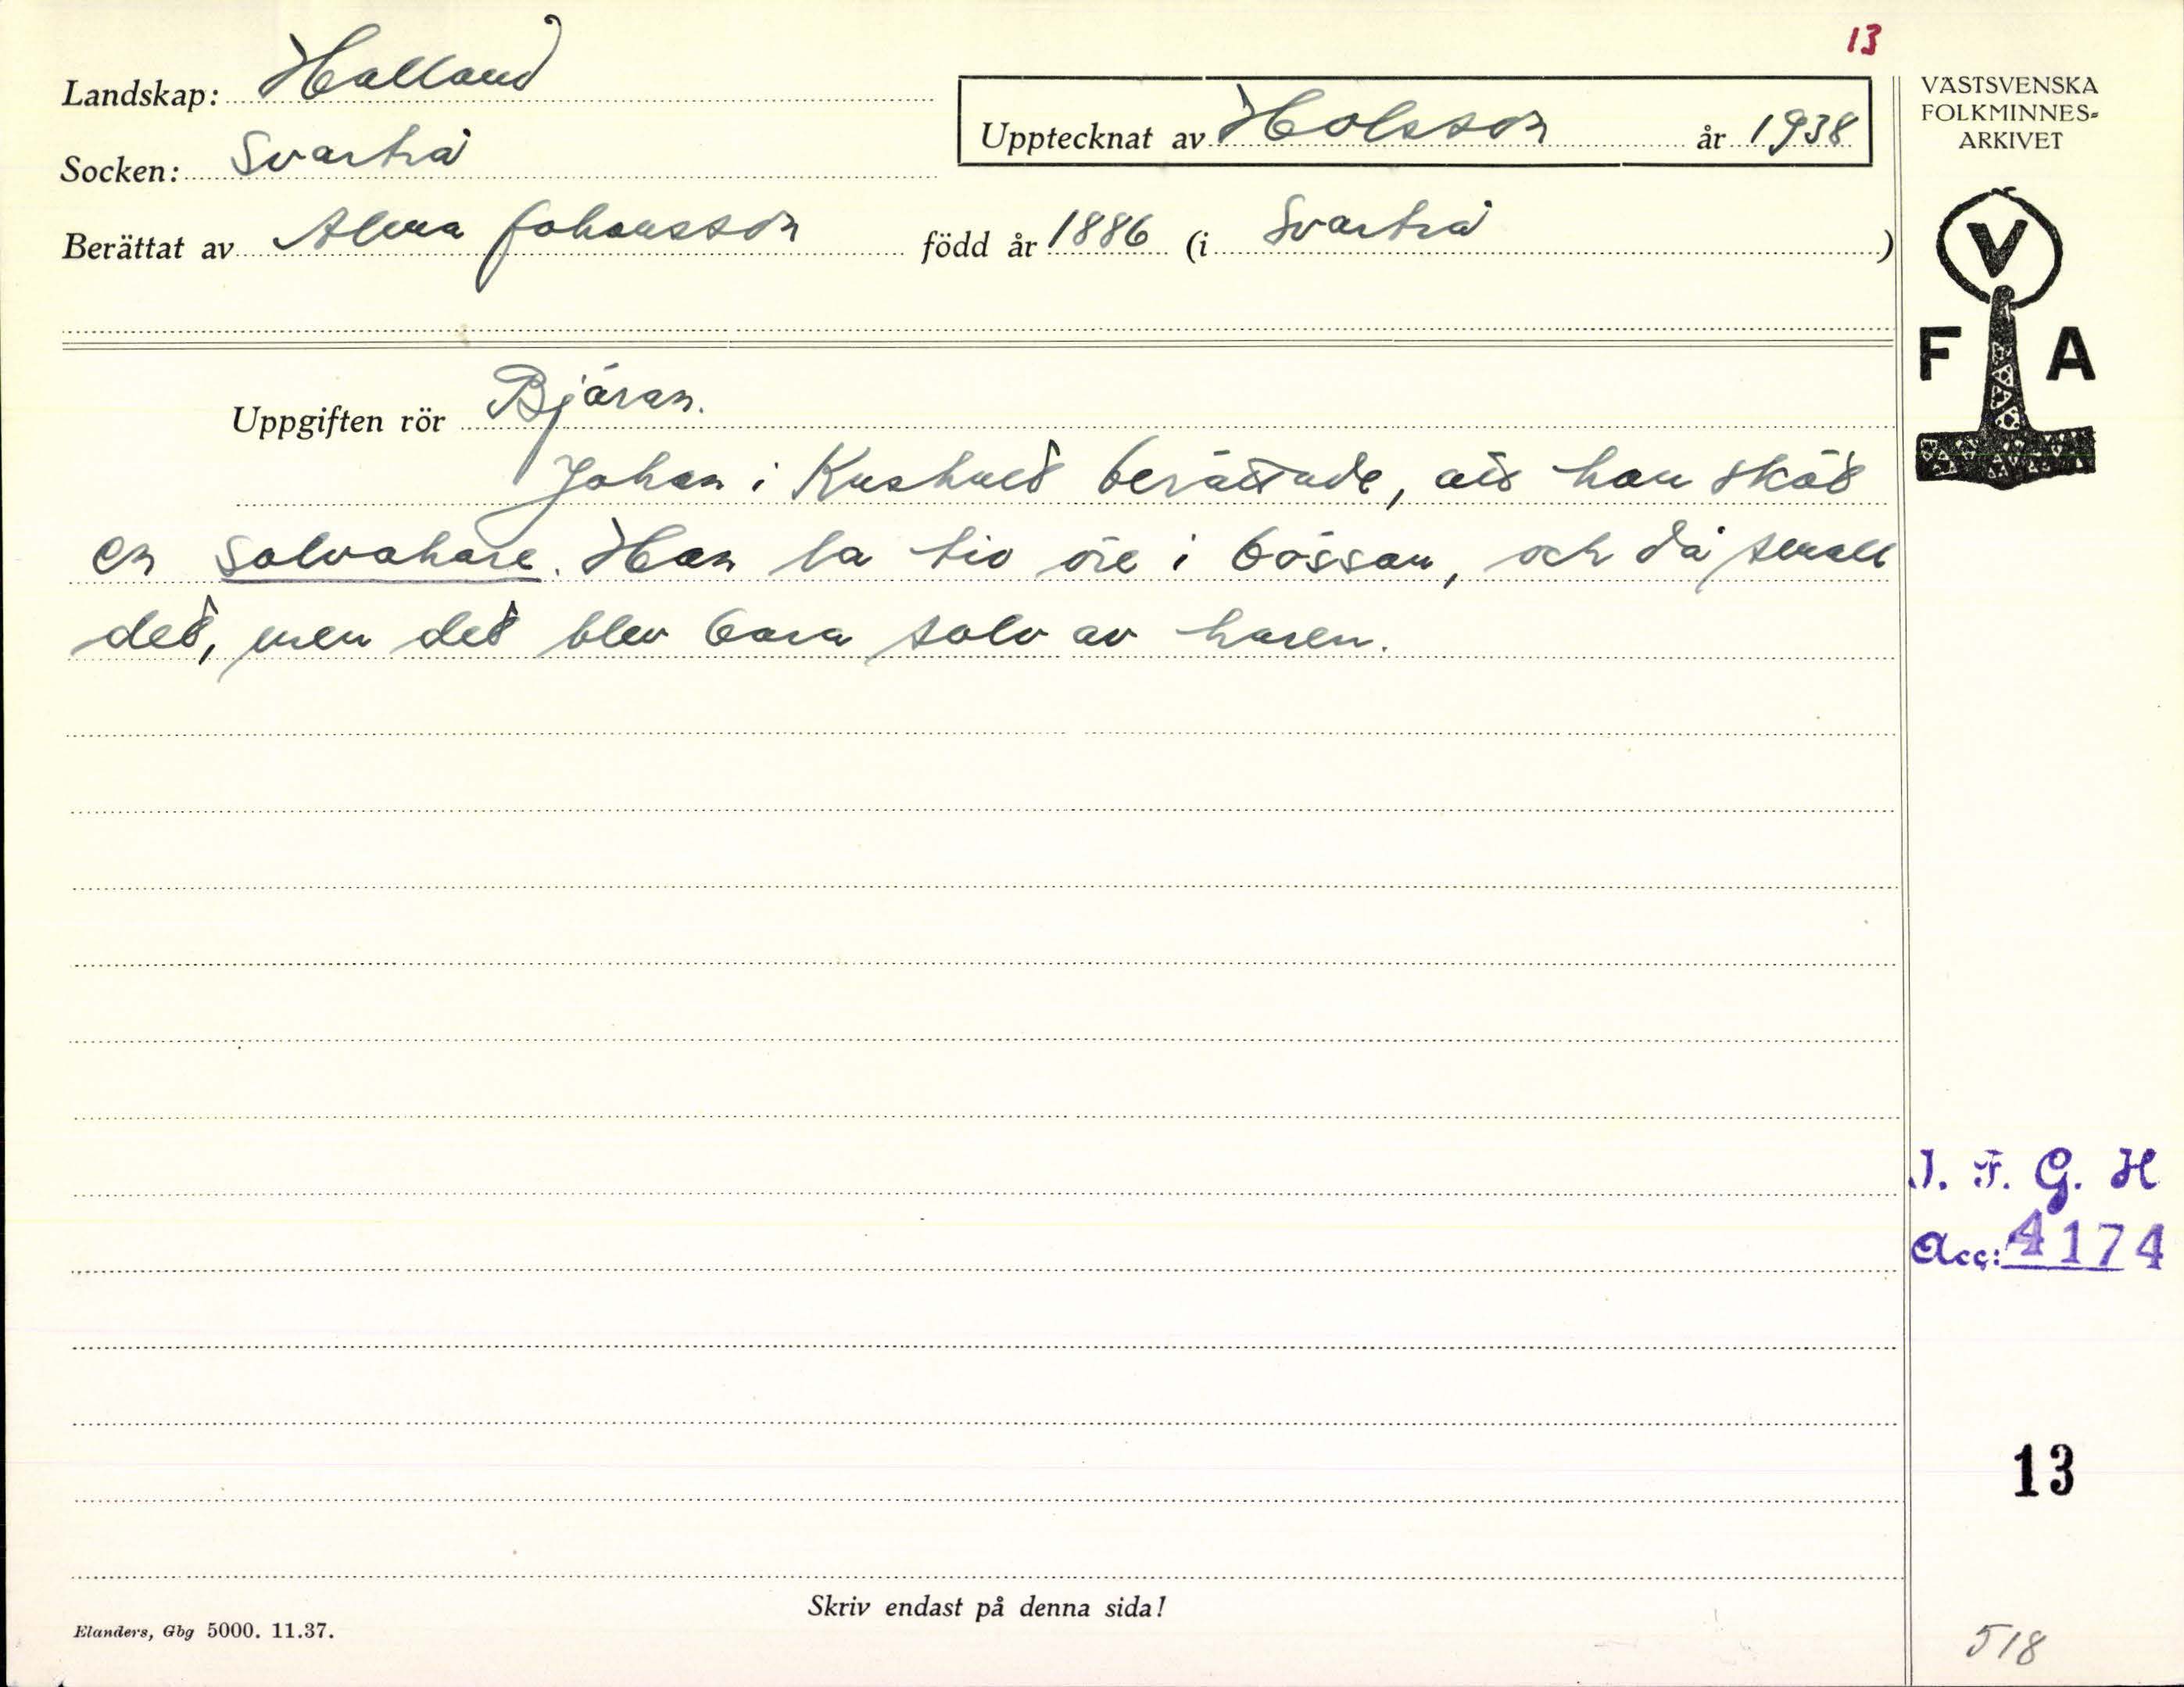 13
Landskap: Halland
Upptecknat av Holsson år 1938
VÄSTSVENSKA
FOLKMINNES-
ARKIVET
Socken: Svartrå
Berättat av Alma Johansson född år 1886 (i Svartrå)
V
F A
Uppgiften rör Bjäran.
Johan i berättade, att han sköt
en solvahare. Han la tio öre i bössan, och då small
det, men det blev bara solv av haren.
I. F. G. H
Acc: 4174
13
Skriv endast på denna sida!
Elanders, Gbg 5000. 11.37.
518